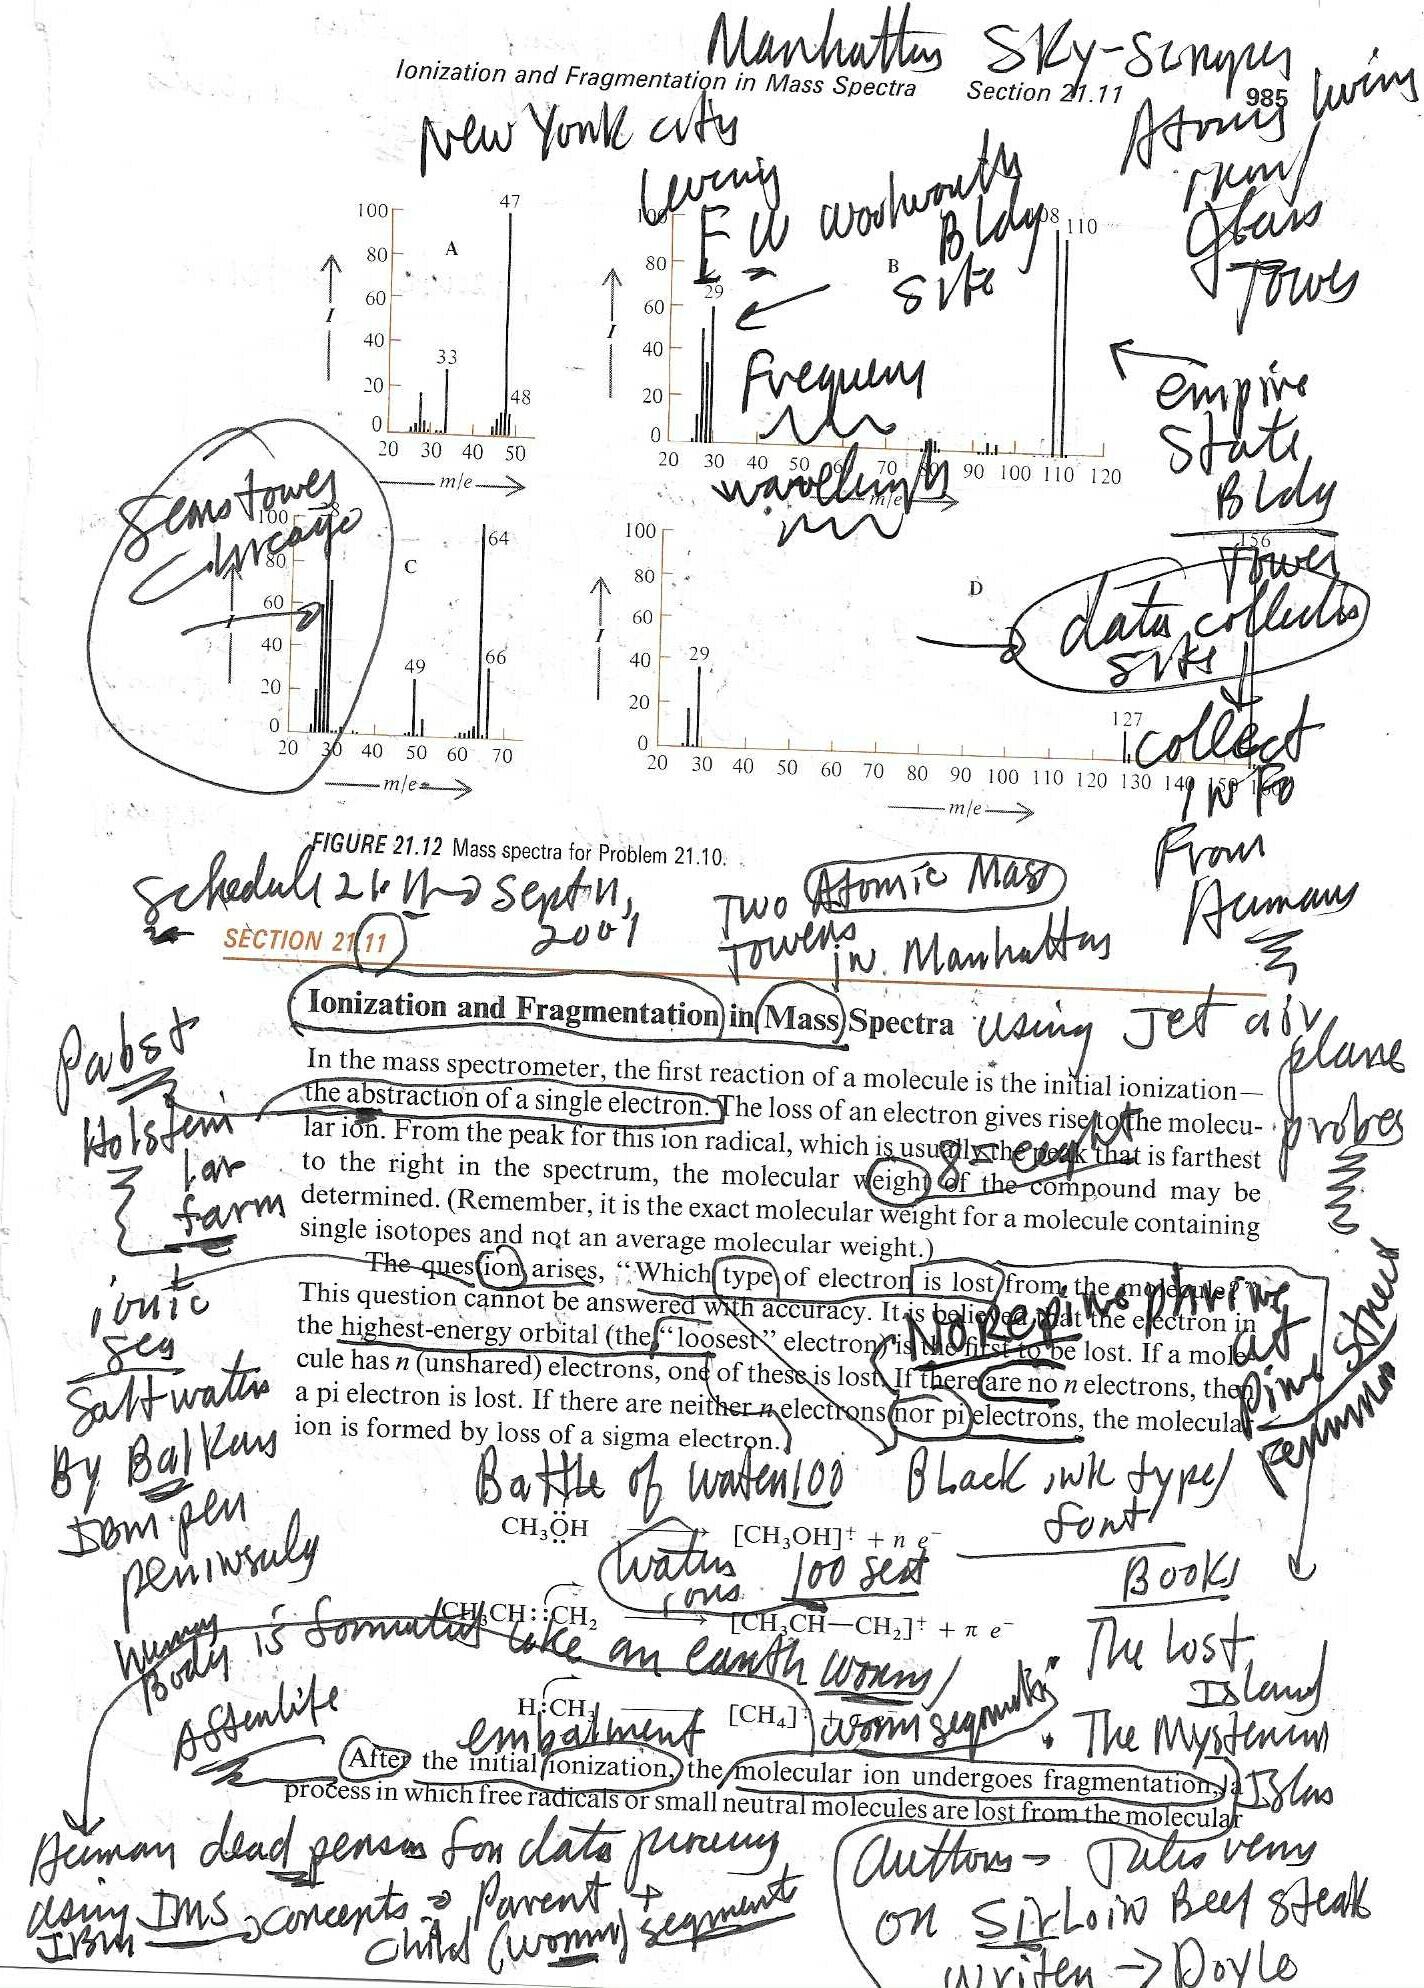 Manhattan Sky-Scrapers
Ionization and Fragmentation in Mass Spectra Section 21.11 985
New York City
Atoms living
Glass
Towers
F W Woolworth
Bldg
Site
100
80
60
40
20
0
A
47
33
48
I
20 30 40 50
m/e
80
60
40
20
0
B
29
110
I
Frequency
wavelength
20 30 40 50 60 70 80 90 100 110 120
empire
State
Bldg
Tower
data collection
site
collect
info
From
Humans
Sears tower
Chicago
100
80
60
40
20
0
C
64
49
66
I
20 30 40 50 60 70
m/e
100
80
60
40
20
0
D
29
127
156
I
20 30 40 50 60 70 80 90 100 110 120 130 140 150
m/e
FIGURE 21.12 Mass spectra for Problem 21.10.
Schedule 21.11 → Sept 11,
2001
Two Atomic Mass
Towers
in Manhattan
SECTION 21.11
Ionization and Fragmentation in Mass Spectra
using Jet air
plane
probes
In the mass spectrometer, the first reaction of a molecule is the initial ionization—
the abstraction of a single electron. The loss of an electron gives rise to the molecu-
lar ion. From the peak for this ion radical, which is usually the peak that is farthest
to the right in the spectrum, the molecular weight of the compound may be
determined. (Remember, it is the exact molecular weight for a molecule containing
single isotopes and not an average molecular weight.)
8 = eight
Pabst
Holstein
farm
The question arises, “Which type of electron is lost from the molecule?”
This question cannot be answered with accuracy. It is believed that the electron in
the highest-energy orbital (the “loosest” electron) is the first to be lost. If a mole-
cule has n (unshared) electrons, one of these is lost. If there are no n electrons, then
a pi electron is lost. If there are neither n electrons nor pi electrons, the molecular
ion is formed by loss of a sigma electron.
Norepinephrine
at
Pine Street
ionic
sea
Salt water
By Balkans
IBM pen
peninsula
Battle of water 100
Black ink type/
font
CH3ÖH → [CH3OH]+ + n e−
water
ions
100 seat
Books
CH3CH::CH2 → [CH3CH—CH2]+ + π e−
The Lost
Island
The Mysterious
Island
human
Body is formatted like an earth worm/
worm segments
H:CH3 → [CH4]
Afterlife
embalment
After the initial ionization, the molecular ion undergoes fragmentation, a
process in which free radicals or small neutral molecules are lost from the molecular
Human dead person for data
using IMS → concepts → Parent +
IBM
child (worm) segment
Authors → Jules Verne
on SirLoin Beef Steak
writen → Doyle